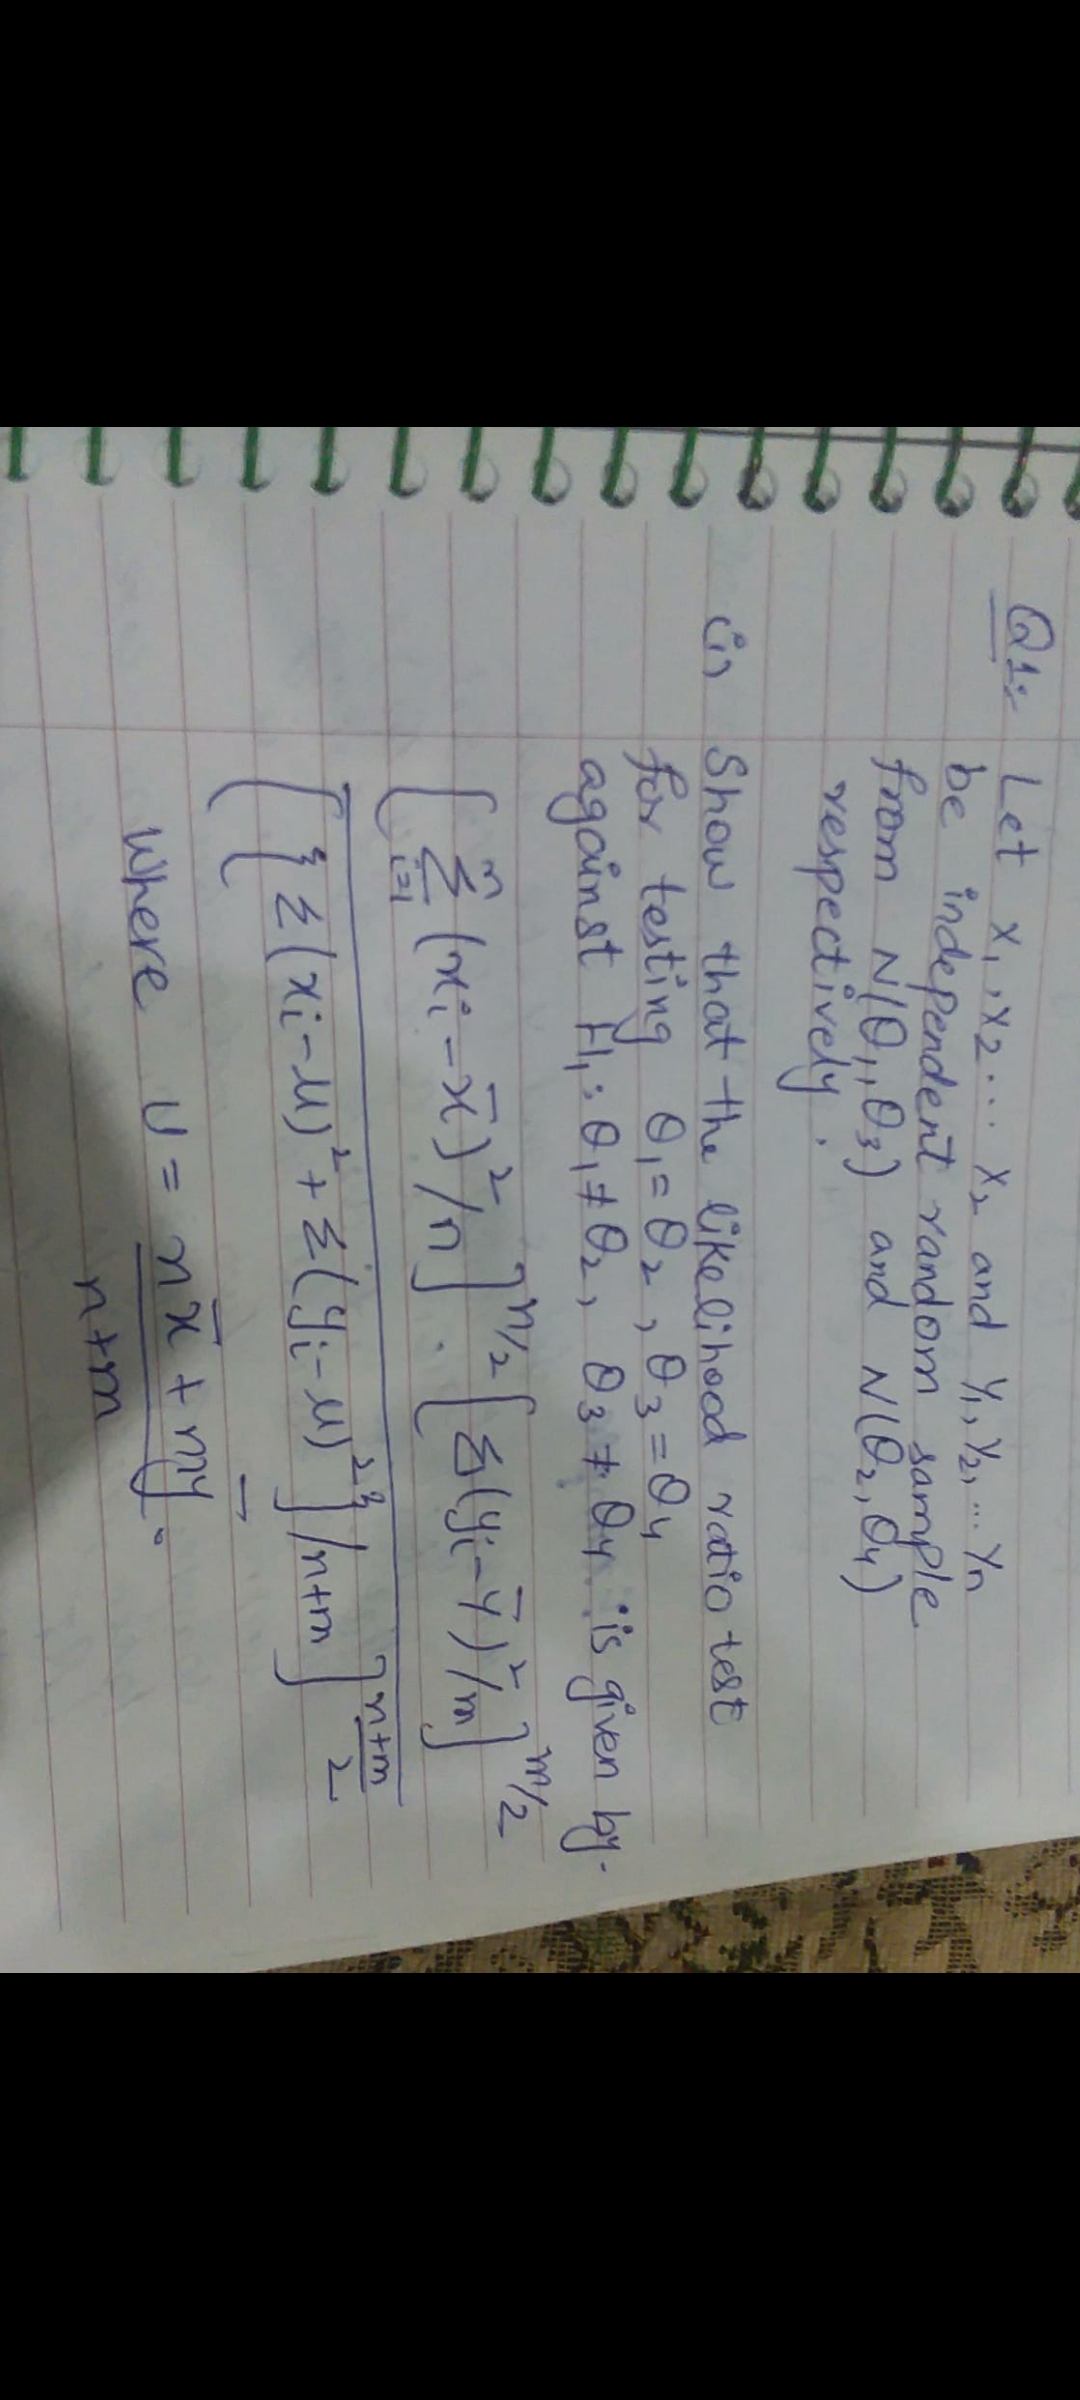 Q1:- Let X₁, X₂... X₂ and Y₁, Y₂, ... Yn
be independent random sample
from N(θ₁, θ₃) and N(θ₂, θ₄)
respectively.
(i) Show that the likelihood ratio test
for testing θ₁ = θ₂, θ₃ = θ₄
against H₁: θ₁ ≠ θ₂, θ₃ ≠ θ₄ is given by.
[Σⁿᵢ₌₁ (xᵢ - x̄)²/n]^n/2 . [Σ(yᵢ - ȳ)²/m]^m/2
[{Σ(xᵢ - u)² + Σ(yᵢ - u)²}]/n+m]^(n+m)/2
Where u = nx̄ + mȳ.
n+m